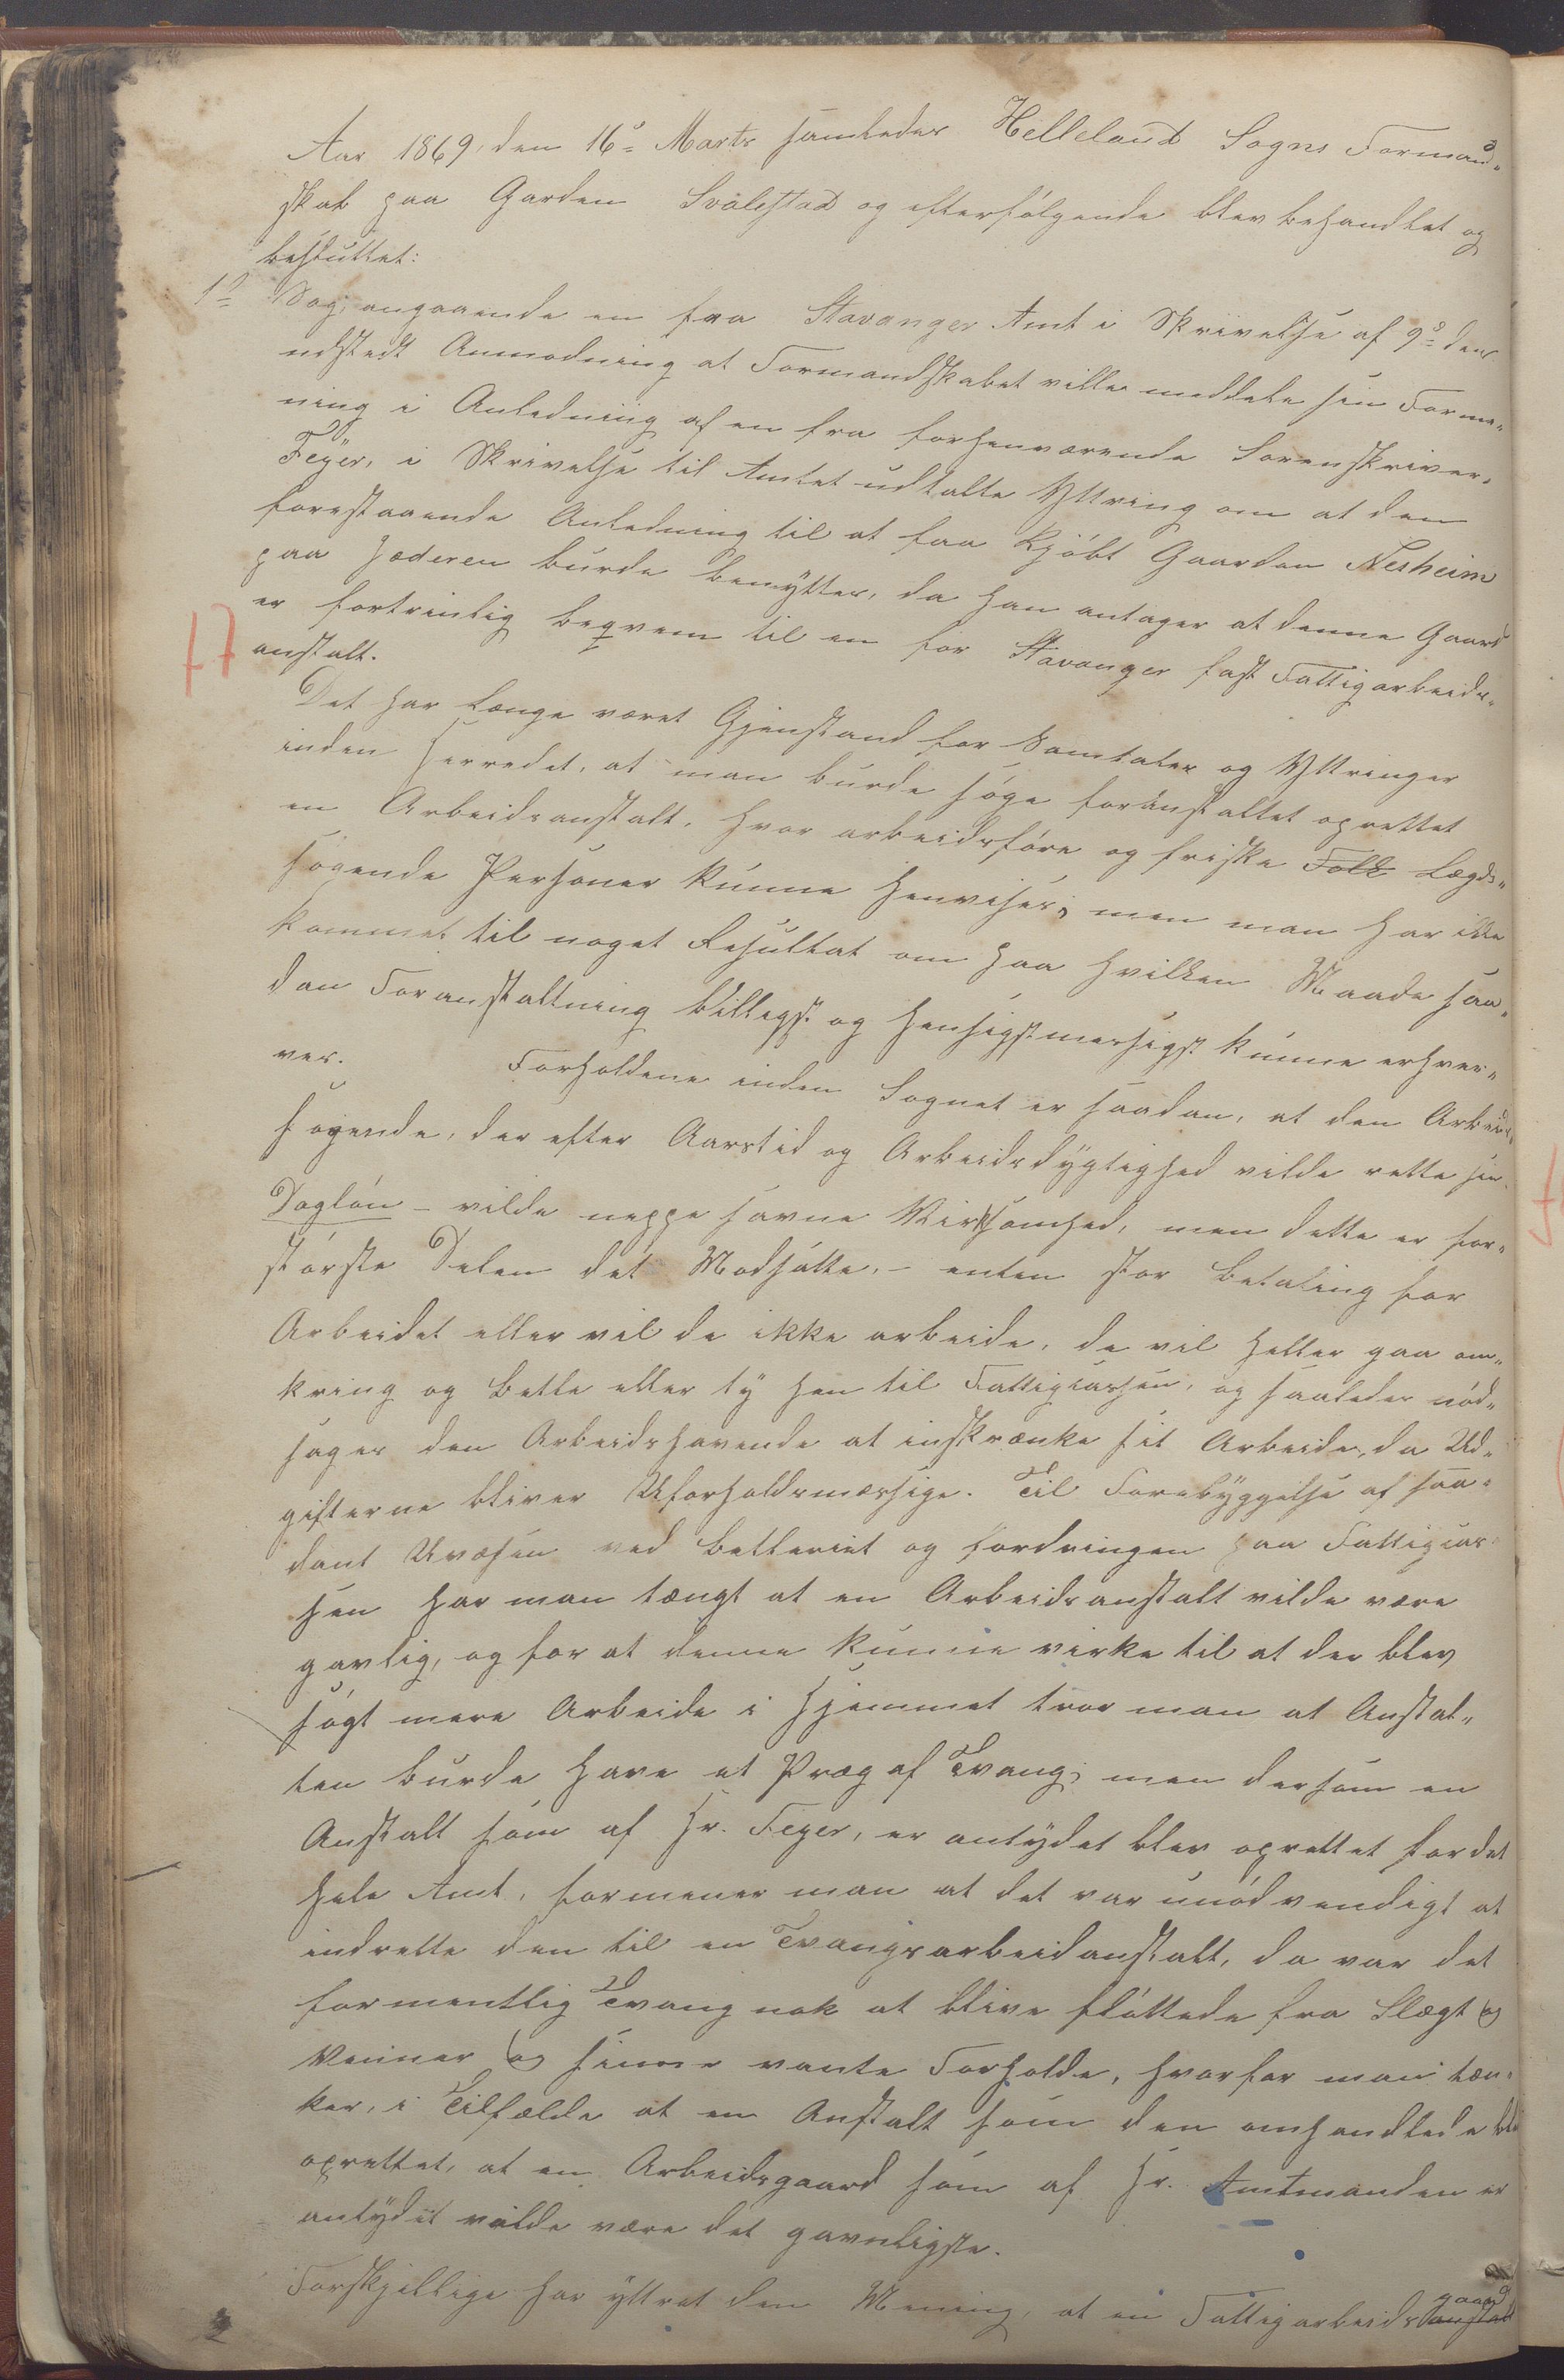 Aar 1869, den 16de Marts samledes Helleland Sogns Formand-
skab paa Garden Svalestad og efterfølgende blev behandlet og
besluttet:
1o Sag, angaaende en fra Stavanger Amt i Skrivelse af 9de dens
udstedt Anmodning at Formandskabet ville meddele sin Forme-
ning i Anledning af en fra forhenværende Sorenskriver
Feyer, i Skrivelse til Amtet udtalte Yttring om at den
forestaaende Anledning til at faa kjøbt Gaarden Nesheim
paa Jæderen burde benyttes, da han antager at denne Gaard
er fortrinlig beqvem til en for Stavanger fast Fattigarbeids-
anstalt.
Det har længe været Gjenstand for Samtaler og Yttringer
inden Herredet, at man burde søge foranstaltet oprettet
en Arbeidsanstalt, hvor arbeidsføre og friske Folk Lægds-
søgende Personer kunne henvises; men man har ikke
kommet til noget Resultat om paa hvilken Maade saa-
dan Foranstaltning billigst og hensigtsmæssigst kunne erhver-
ves. Forholdene inden Sognet er saadan, at den Arbeids-
søgende, der efter Aarstid og Arbeidsdygtighed vilde rette sin
Dagløn – vilde neppe savne Virksomhed, men dette er for-
største Delen det Modsatte, – enten stor Betaling for
Arbeidet eller vil de ikke arbeide, de vil heller gaa om-
kring og betle eller ty hen til Fattigcassen, og saaledes nød-
sages den Arbeidshavende at inskrænke sit Arbeide, da Ud-
gifterne bliver Uforholdsmæssige. Til Forebyggelse af saa-
dant Uvæsen ved Betleriet og fordringen paa Fattigcas-
sen har man tængt at en Arbeidsanstalt vilde være
gavlig, og for at denne kunne virke til at der blev
søgt mere Arbeide i Hjemmet tror man at Anstal-
ten burde have et Præg af Tvang; men dersom en
Anstalt som af Hr. Feyer, er antydet blev oprettet for det
hele Amt, formener man at det var unødvendigt at
indrette den til en Tvangsarbeidanstalt, da var det
formentlig Tvang nok at blive fløttede fra Slægt og
Venner og sinne vante Forholde, hvorfor man tæn-
ker, i Tilfælde at en Anstalt som den omhandlede blev
oprettet, at en Arbeidsgaard som af Hr. Amtmanden er
antydit vilde være det gavnligste.
Forskjellige har yttret den Mening, at en Fattigarbeidsanstalt gaard